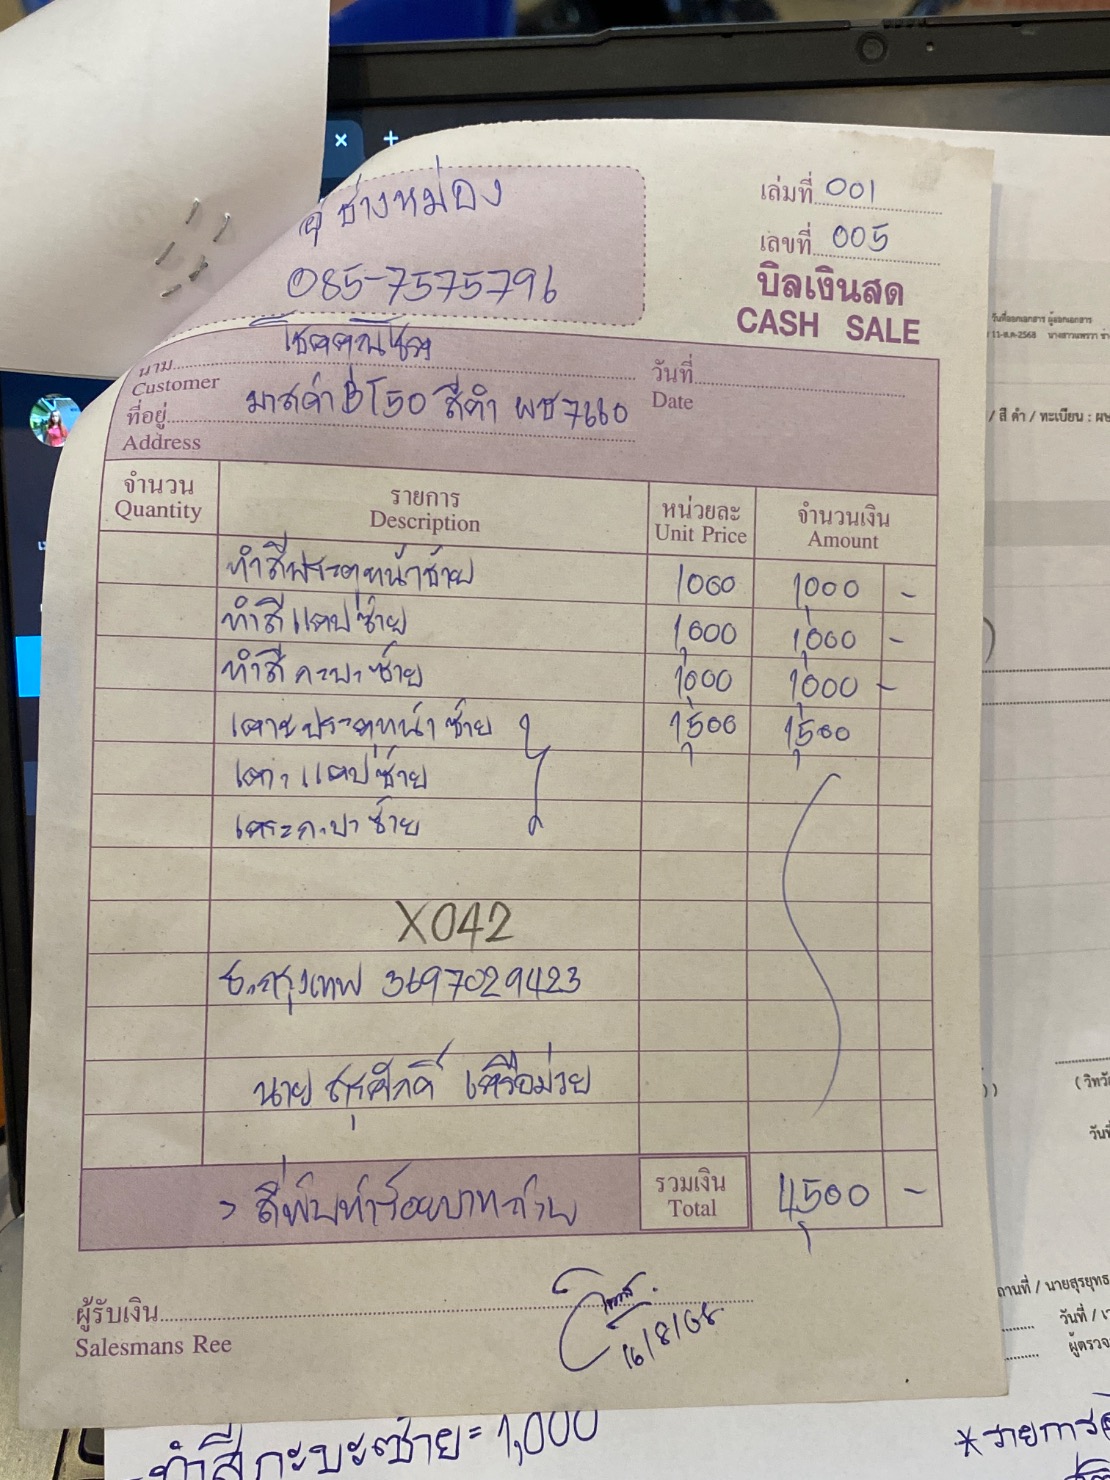 ช่างหม่อง
085-7575796
เล่มที่ 001
เลขที่ 005
บิลเงินสด
CASH SALE
นาม โชคคณโชค
Customer
วันที่
Date
ที่อยู่ มาสด้า BT50 สีดำ ผช 7660
Address
จำนวน รายการ หน่วยละ จำนวนเงิน
Quantity Description Unit Price Amount
ทำสีประตูหน้าซ้าย 1000 1000 -
ทำสีแคปซ้าย 1,000 1,000 -
ทำสีกะบะซ้าย 1000 1000 -
เคาะประตูหน้าซ้าย 1,500 1,500
เคาะแคปซ้าย
เคาะกะบะซ้าย
X042
ธ.กรุงเทพ 3697029423
นาย สุรศักดิ์ เครือม่วย
สี่พันห้าร้อยบาทถ้วน รวมเงิน 4,500 -
Total
ผู้รับเงิน
Salesmans Ree
16/8/68
ทำสีกะบะซ้าย = 1,000
*รายการ
วันที่ออกเอกสาร ผู้ออกเอกสาร
/ สี ดำ / ทะเบียน : ผษ
วันที่
ถานที่ / นายสุรยุทธ
วันที่ / เว
ผู้ตรวจ